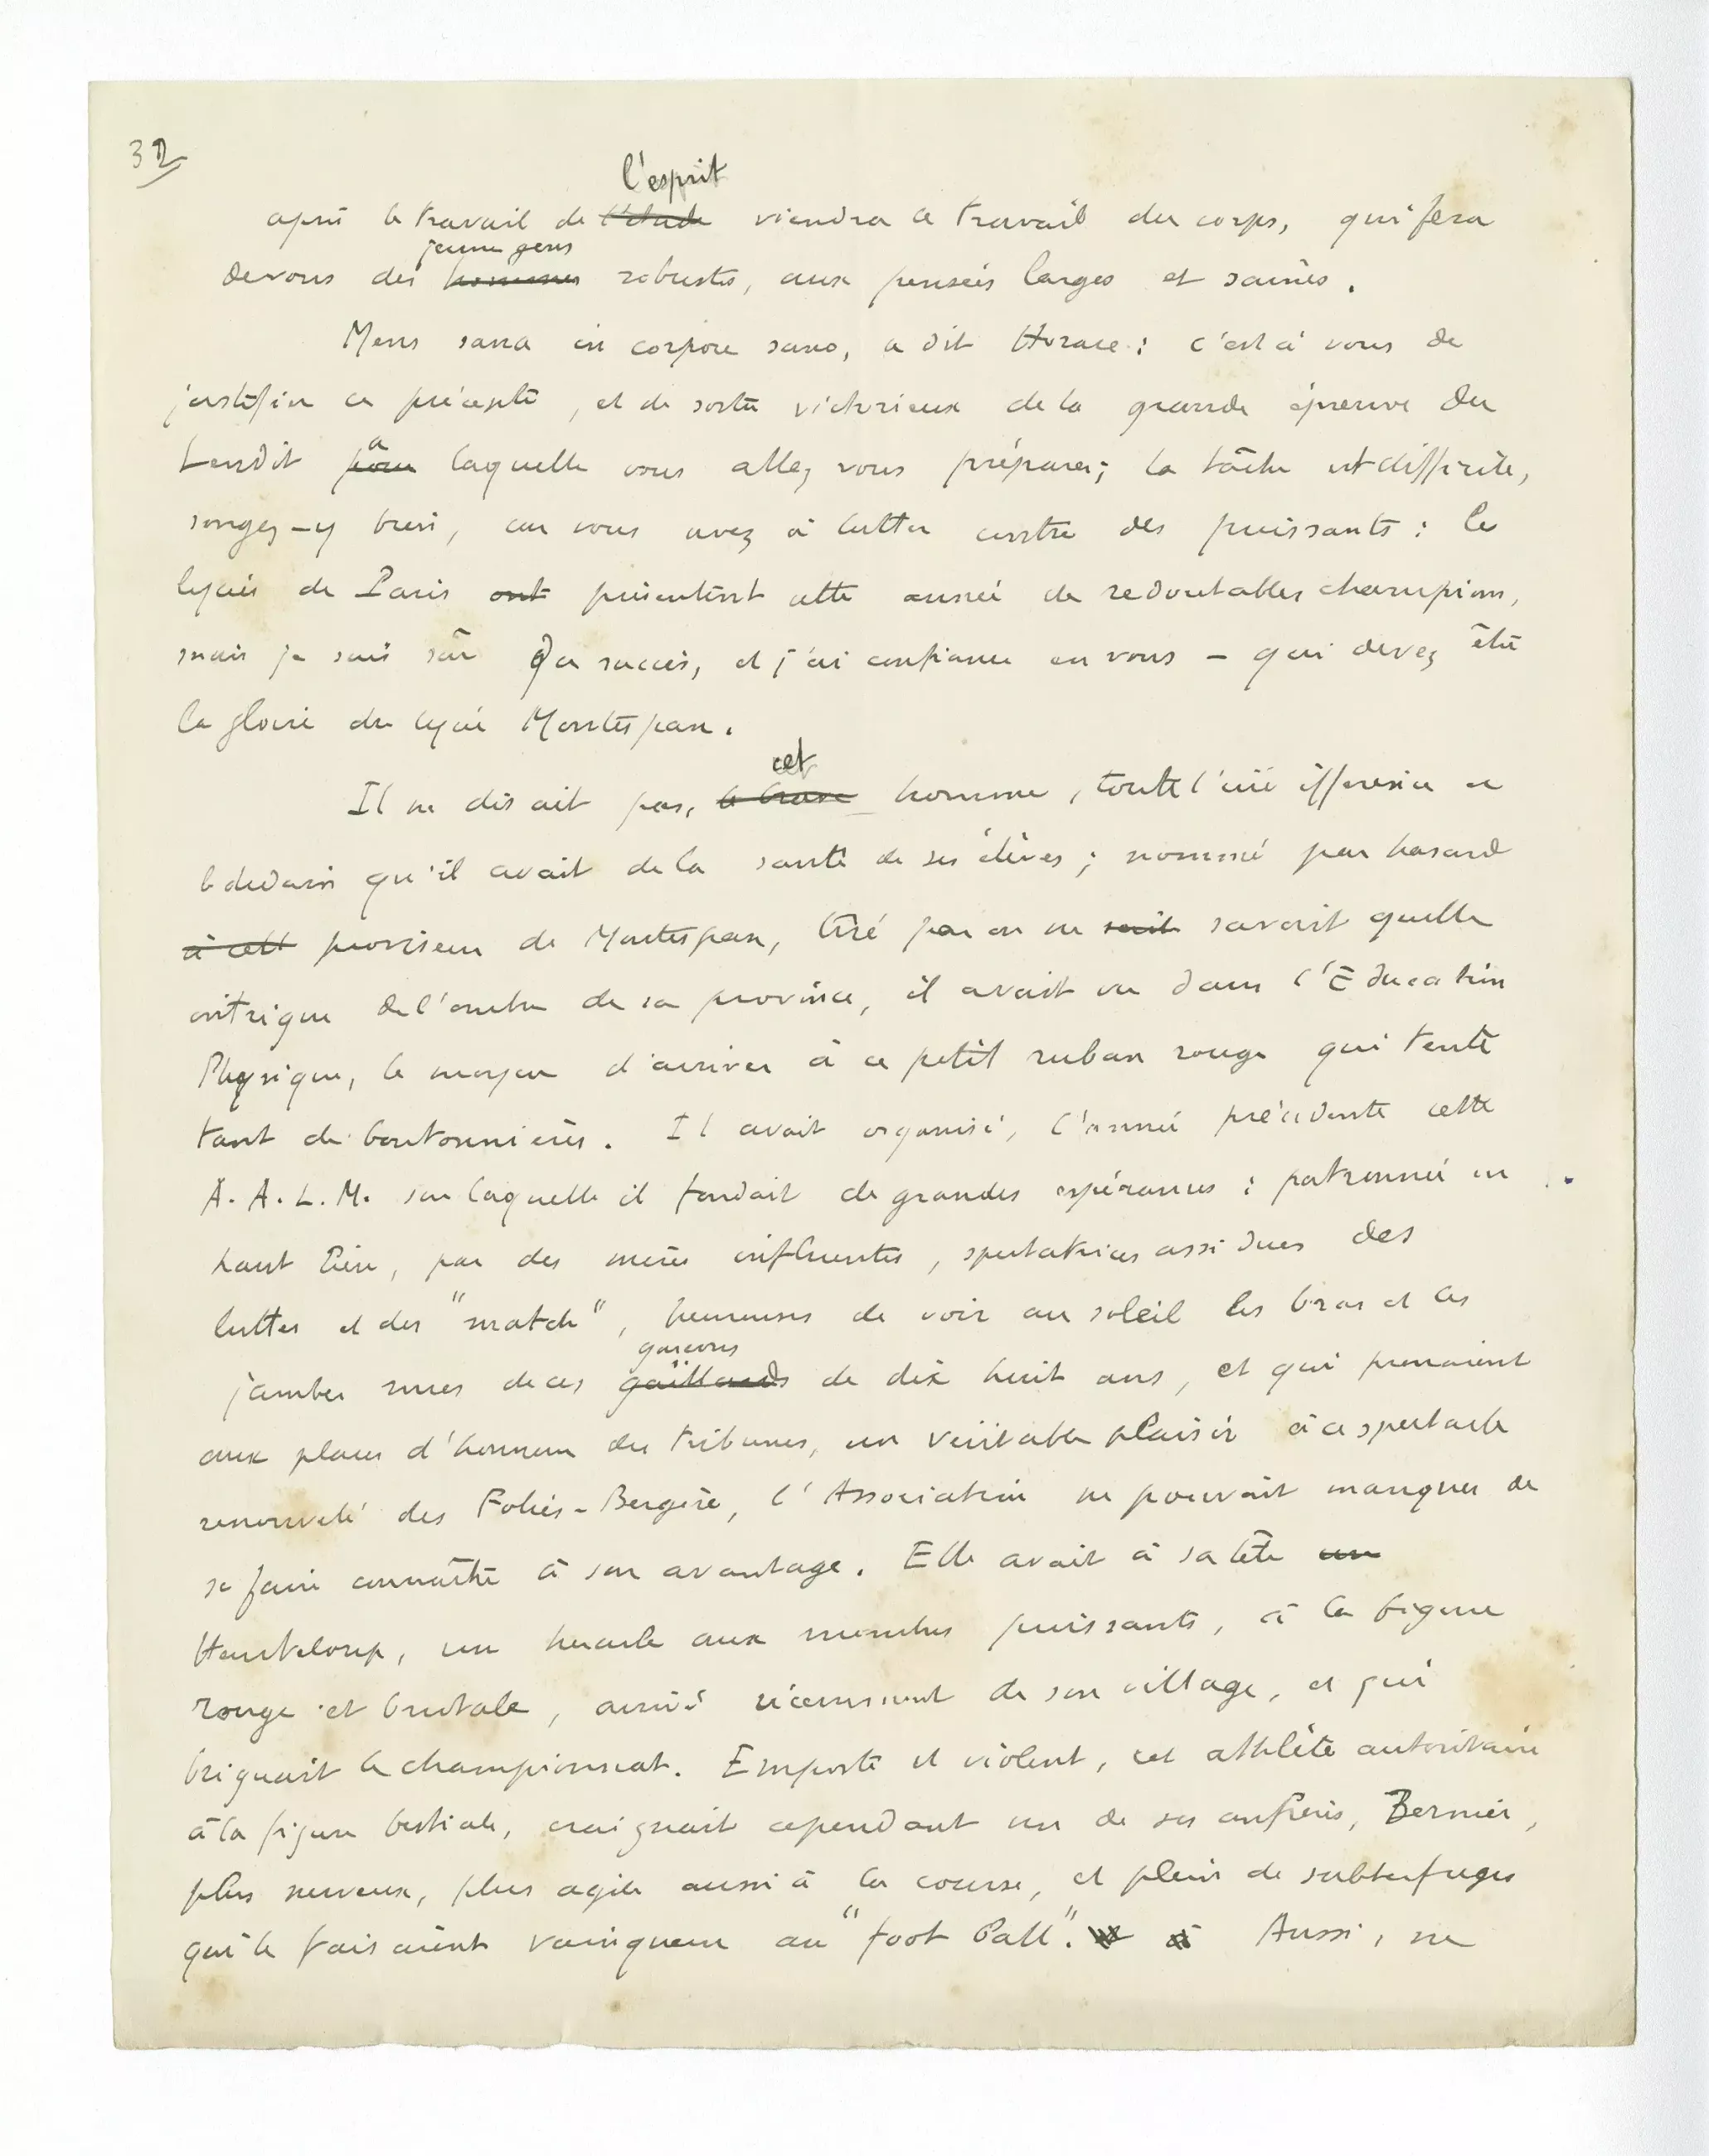 32
l'esprit
après le travail de l'étude viendra le travail du corps, qui fera
jeunes gens
de vous des hommes robustes, aux pensées larges et saines.
Mens sana in corpore sano, a dit Horace : c'est à vous de
justifier ce précepte, et de sortir victorieux de la grande épreuve du
à
Lendit pour laquelle vous allez vous préparer ; la tâche est difficile,
songez-y bien, car vous avez à lutter contre des puissants : les
lycées de Paris ont présentent cette année de redoutables champions,
mais je suis sûr du succès, et j'ai confiance en vous – qui devez être
la gloire du lycée Montespan.
cet
Il ne disait pas, le brave homme, toute l'indifférence et
le dédain qu'il avait de la santé de ses élèves ; nommé par hasard
à cett proviseur de Montespan, tiré par on ne sait savait quelle
intrigue de l'ombre de sa province, il avait vu dans l'Education
Physique, le moyen d'arriver à ce petit ruban rouge qui tente
tant de boutonnières. Il avait organisé, l'année précédente cette
A. A. L. M. sur laquelle il fondait de grandes espérances : patronnée en
haut lieu, par des mères influentes, spectatrices assidues des
luttes et des "match", heureuses de voir au soleil les bras et les
garçons
jambes nues de ces gaillards de dix huit ans, et qui prenaient
aux places d'honneur des tribunes, un véritable plaisir à ce spectacle
renouvelé des Folies-Bergère, l'Association ne pouvait manquer de
se faire connaître à son avantage. Elle avait à sa tête un
Hauteloup, un hercule aux membres puissants, à la figure
rouge et brutale, arrivé récemment de son village, et qui
briguait le championnat. Emporté et violent, cet athlète autoritaire
à la figure bestiale, craignait cependant un de ses confrères, Bernier,
plus nerveux, plus agile aussi à la course, et plein de subterfuges
qui le faisaient vainqueur au "foot Ball". à Aussi, ne